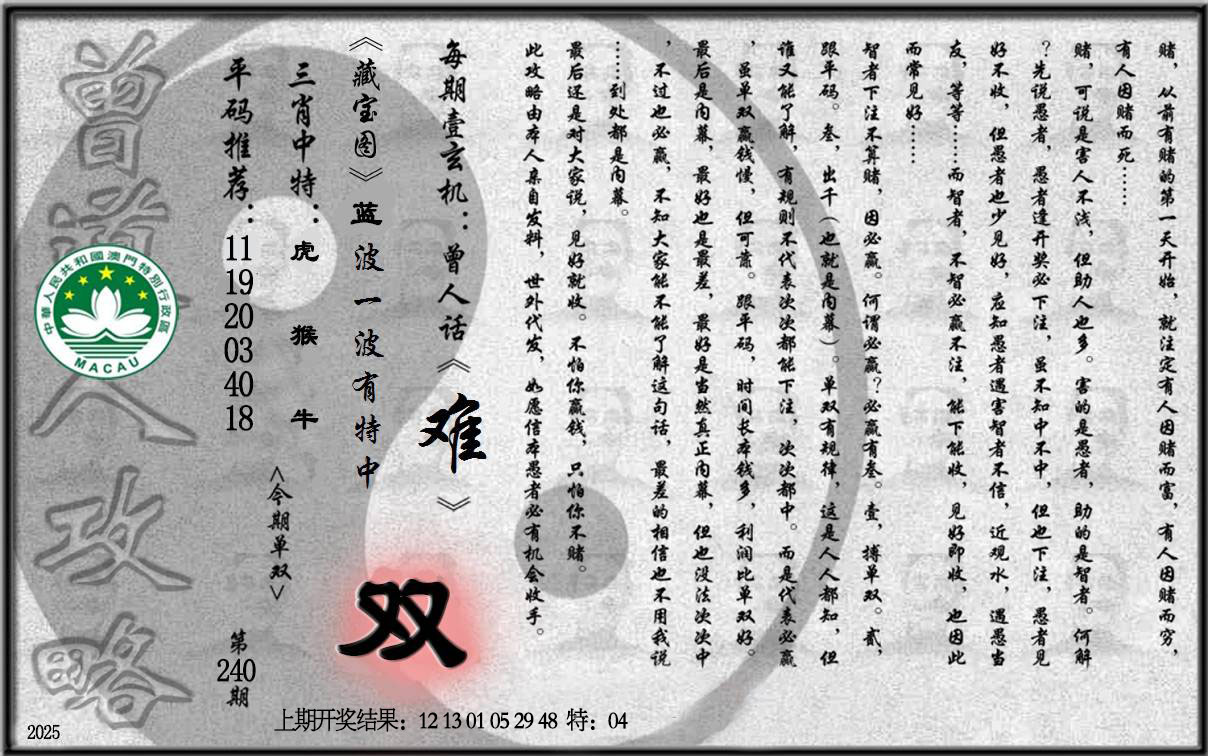 赌，从前有赌的第一天开始，就注定有人因赌而富，有人因赌而穷，
有人因赌而死……
赌，可说是害人不浅，但助人也多。害的是愚者，助的是智者。何解
？先说愚者，愚者逢开奖必下注，虽不知中不中，但也下注，愚者见
好不收，但愚者也少见好，应知愚者遇害智者不信，近观水，遇愚当
友，等等……而智者，不智必赢不注，能下能收，见好即收，也因此
而常见好……
智者下注不算赌，因必赢。何谓必赢？必赢有叁。壹，搏单双。贰，
跟平码。叁，出千（也就是内幕）。单双有规律，这是人人都知，但
谁又能了解，有规则不代表次次都能下注，次次都中。而是代表必赢
，虽单双赢钱慢，但可靠。跟平码，时间长本钱多，利润比单双好。
最后是内幕，最好也是最差，最好是当然真正内幕，但也没法次次中
，不过也必赢，不知大家能不能了解这句话，最差的相信也不用我说
……到处都是内幕。
最后还是对大家说，见好就收。不怕你赢钱，只怕你不赌。
此攻略由本人亲自发料，世外代发，如愿信本愚者必有机会收手。
每期壹玄机：曾人话《难》
《藏宝图》蓝波一波有特中
双
三肖中特：虎 猴 牛
<今期单双>
平码推荐：11 19 20 03 40 18
第240期
曾道人攻略
中華人民共和國澳門特別行政區
MACAU
上期开奖结果：12 13 01 05 29 48 特：04
2025